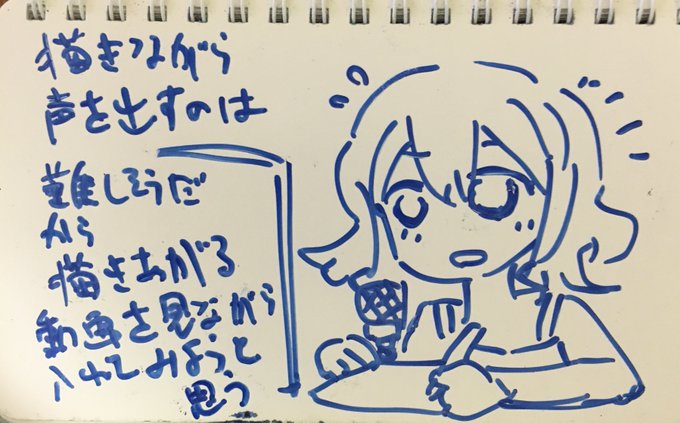 描きながら
声を出すのは
難しそうだ
から
描きあがる
動画を見ながら
入れてみようと
思う